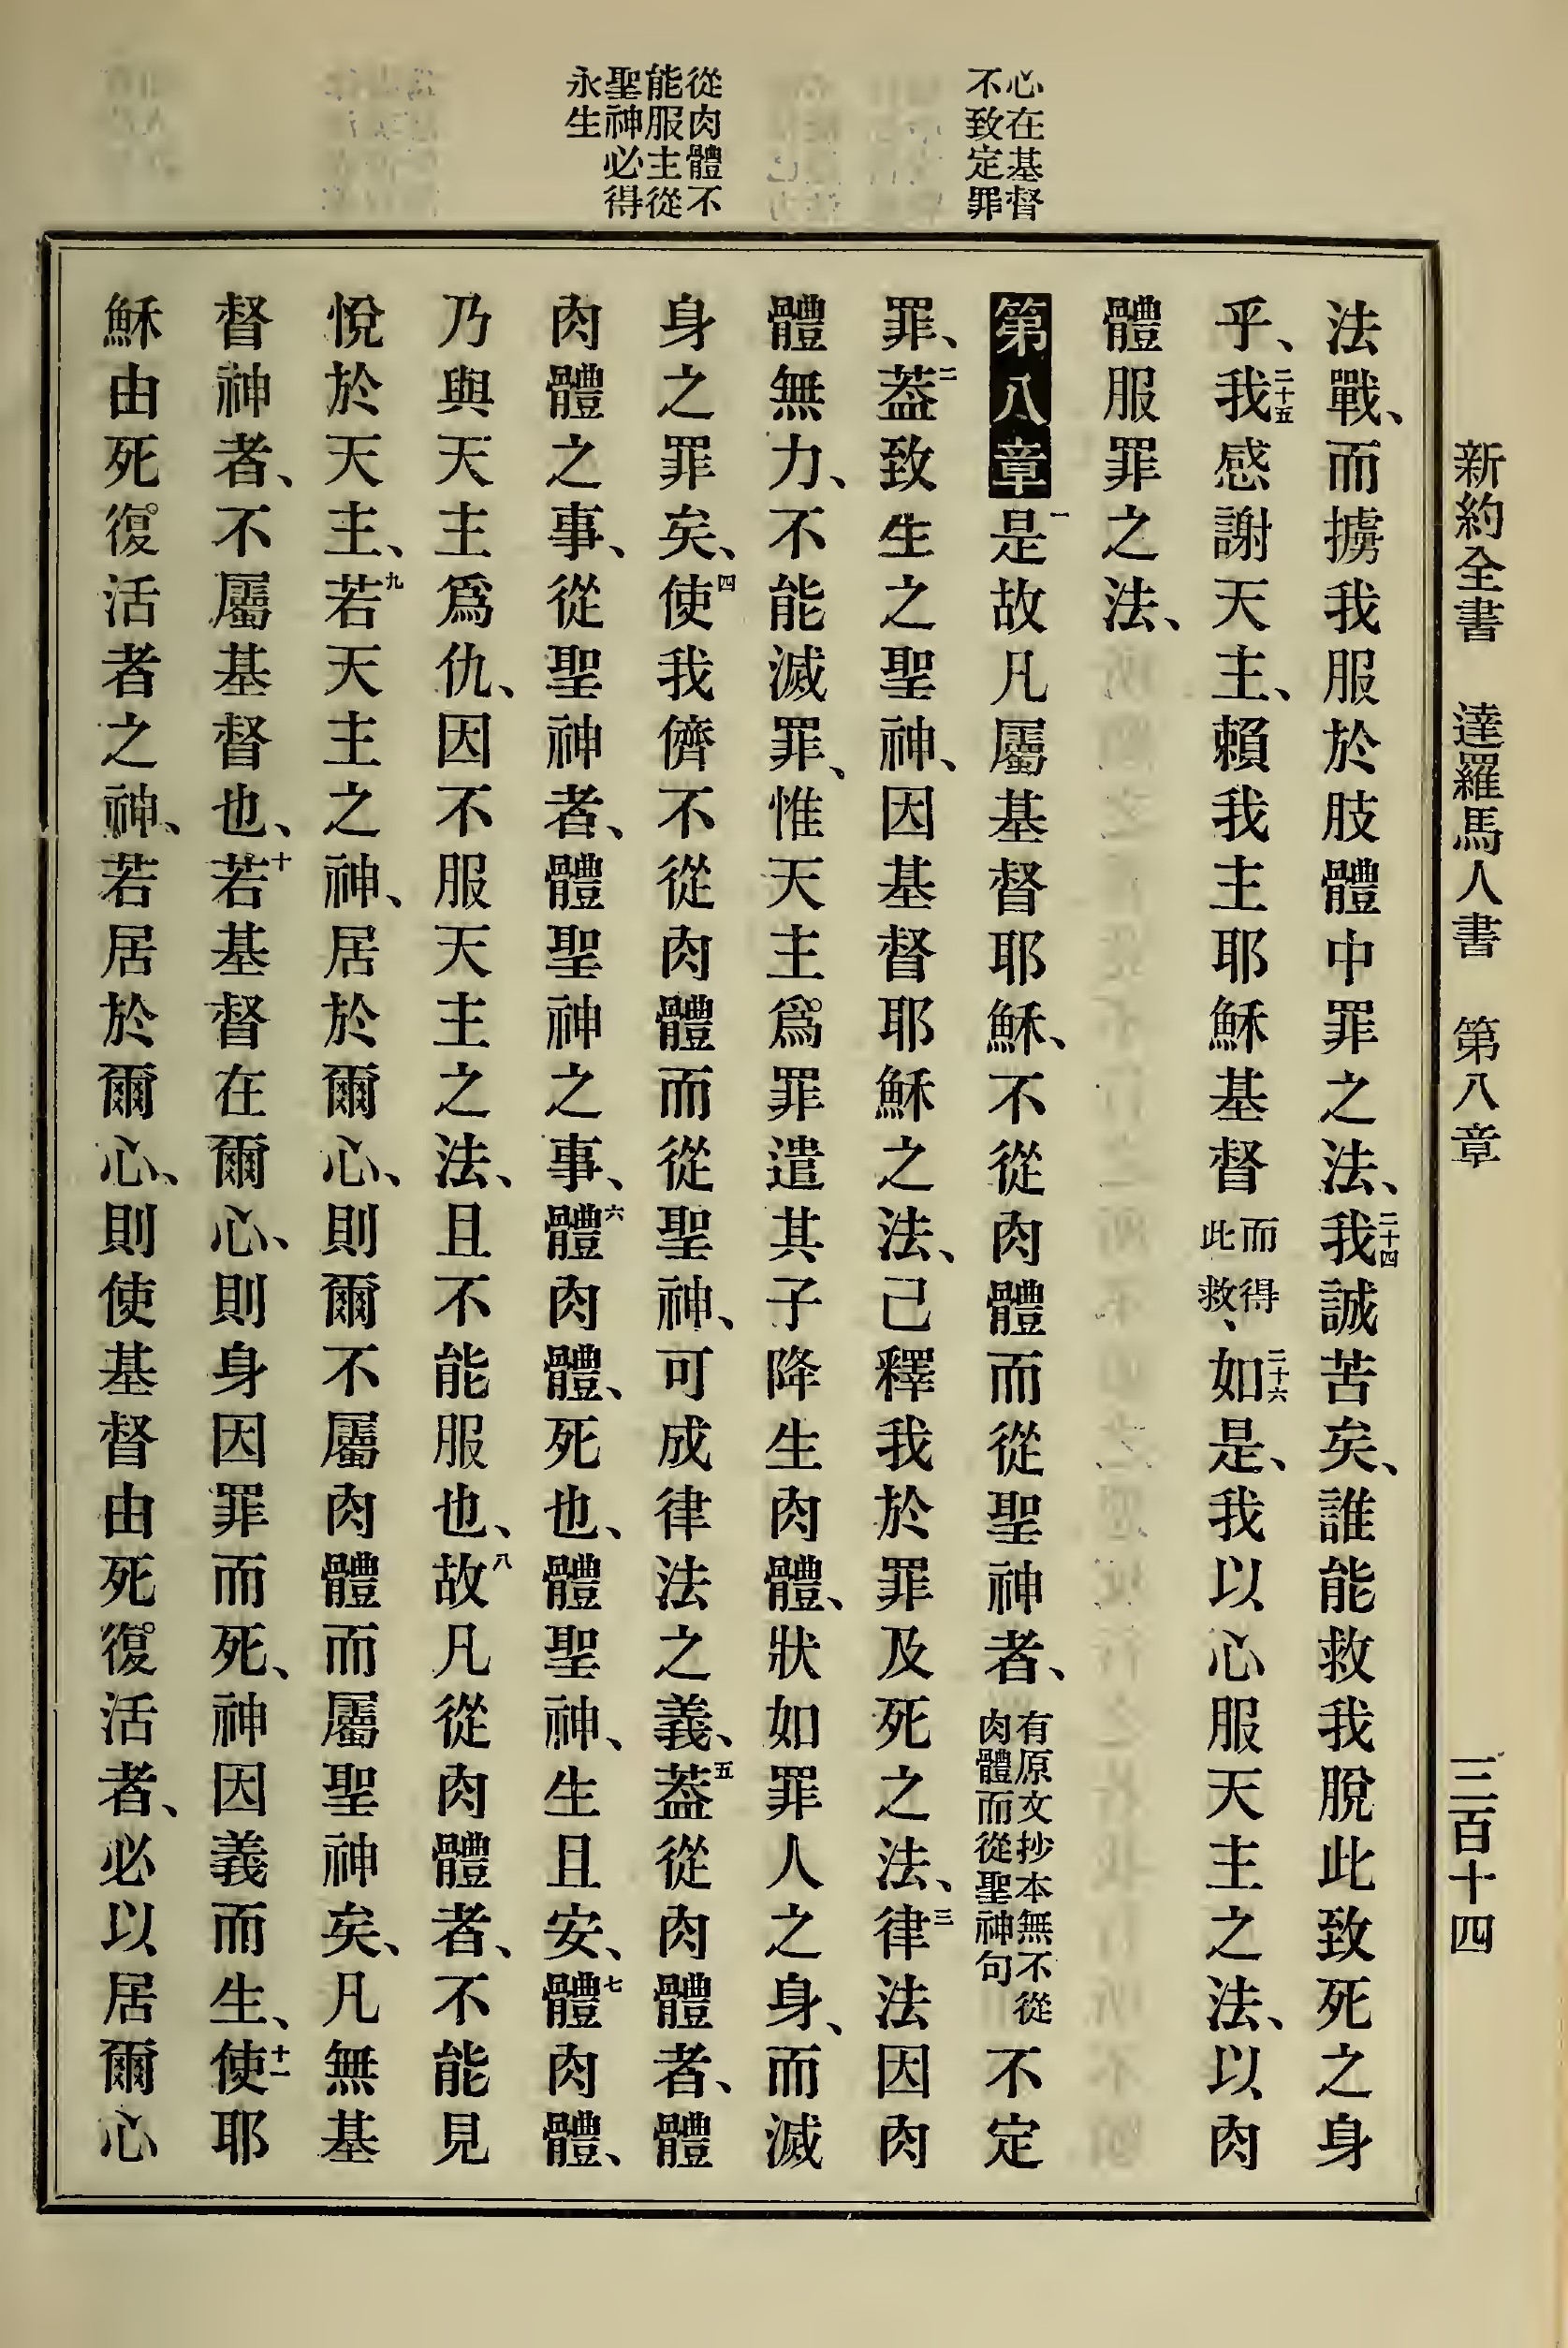 新約全書 達羅馬人書 第八章 三百十四
心在基督
不致定罪
從肉體不
能服主從
聖神必得
永生
法戰、而擄我服於肢體中罪之法、二十四我誠苦矣、誰能救我脫此致死之身
乎、二十五我感謝天主、賴我主耶穌基督而得此救、二十六如是、我以心服天主之法、以肉
體服罪之法、
第八章一是故凡屬基督耶穌、不從肉體而從聖神者、有原文抄本無不從肉體而從聖神句不定
罪、二蓋致生之聖神、因基督耶穌之法、己釋我於罪及死之法、三律法因肉
體無力、不能滅罪、惟天主爲罪遣其子降生肉體、狀如罪人之身、而滅
身之罪矣、四使我儕不從肉體而從聖神、可成律法之義、五蓋從肉體者、體
肉體之事、從聖神者、體聖神之事、六體肉體、死也、體聖神、生且安、七體肉體、
乃與天主爲仇、因不服天主之法、且不能服也、八故凡從肉體者、不能見
悅於天主、九若天主之神、居於爾心、則爾不屬肉體而屬聖神矣、凡無基
督神者、不屬基督也、十若基督在爾心、則身因罪而死、神因義而生、十一使耶
穌由死復活者之神、若居於爾心、則使基督由死復活者、必以居爾心